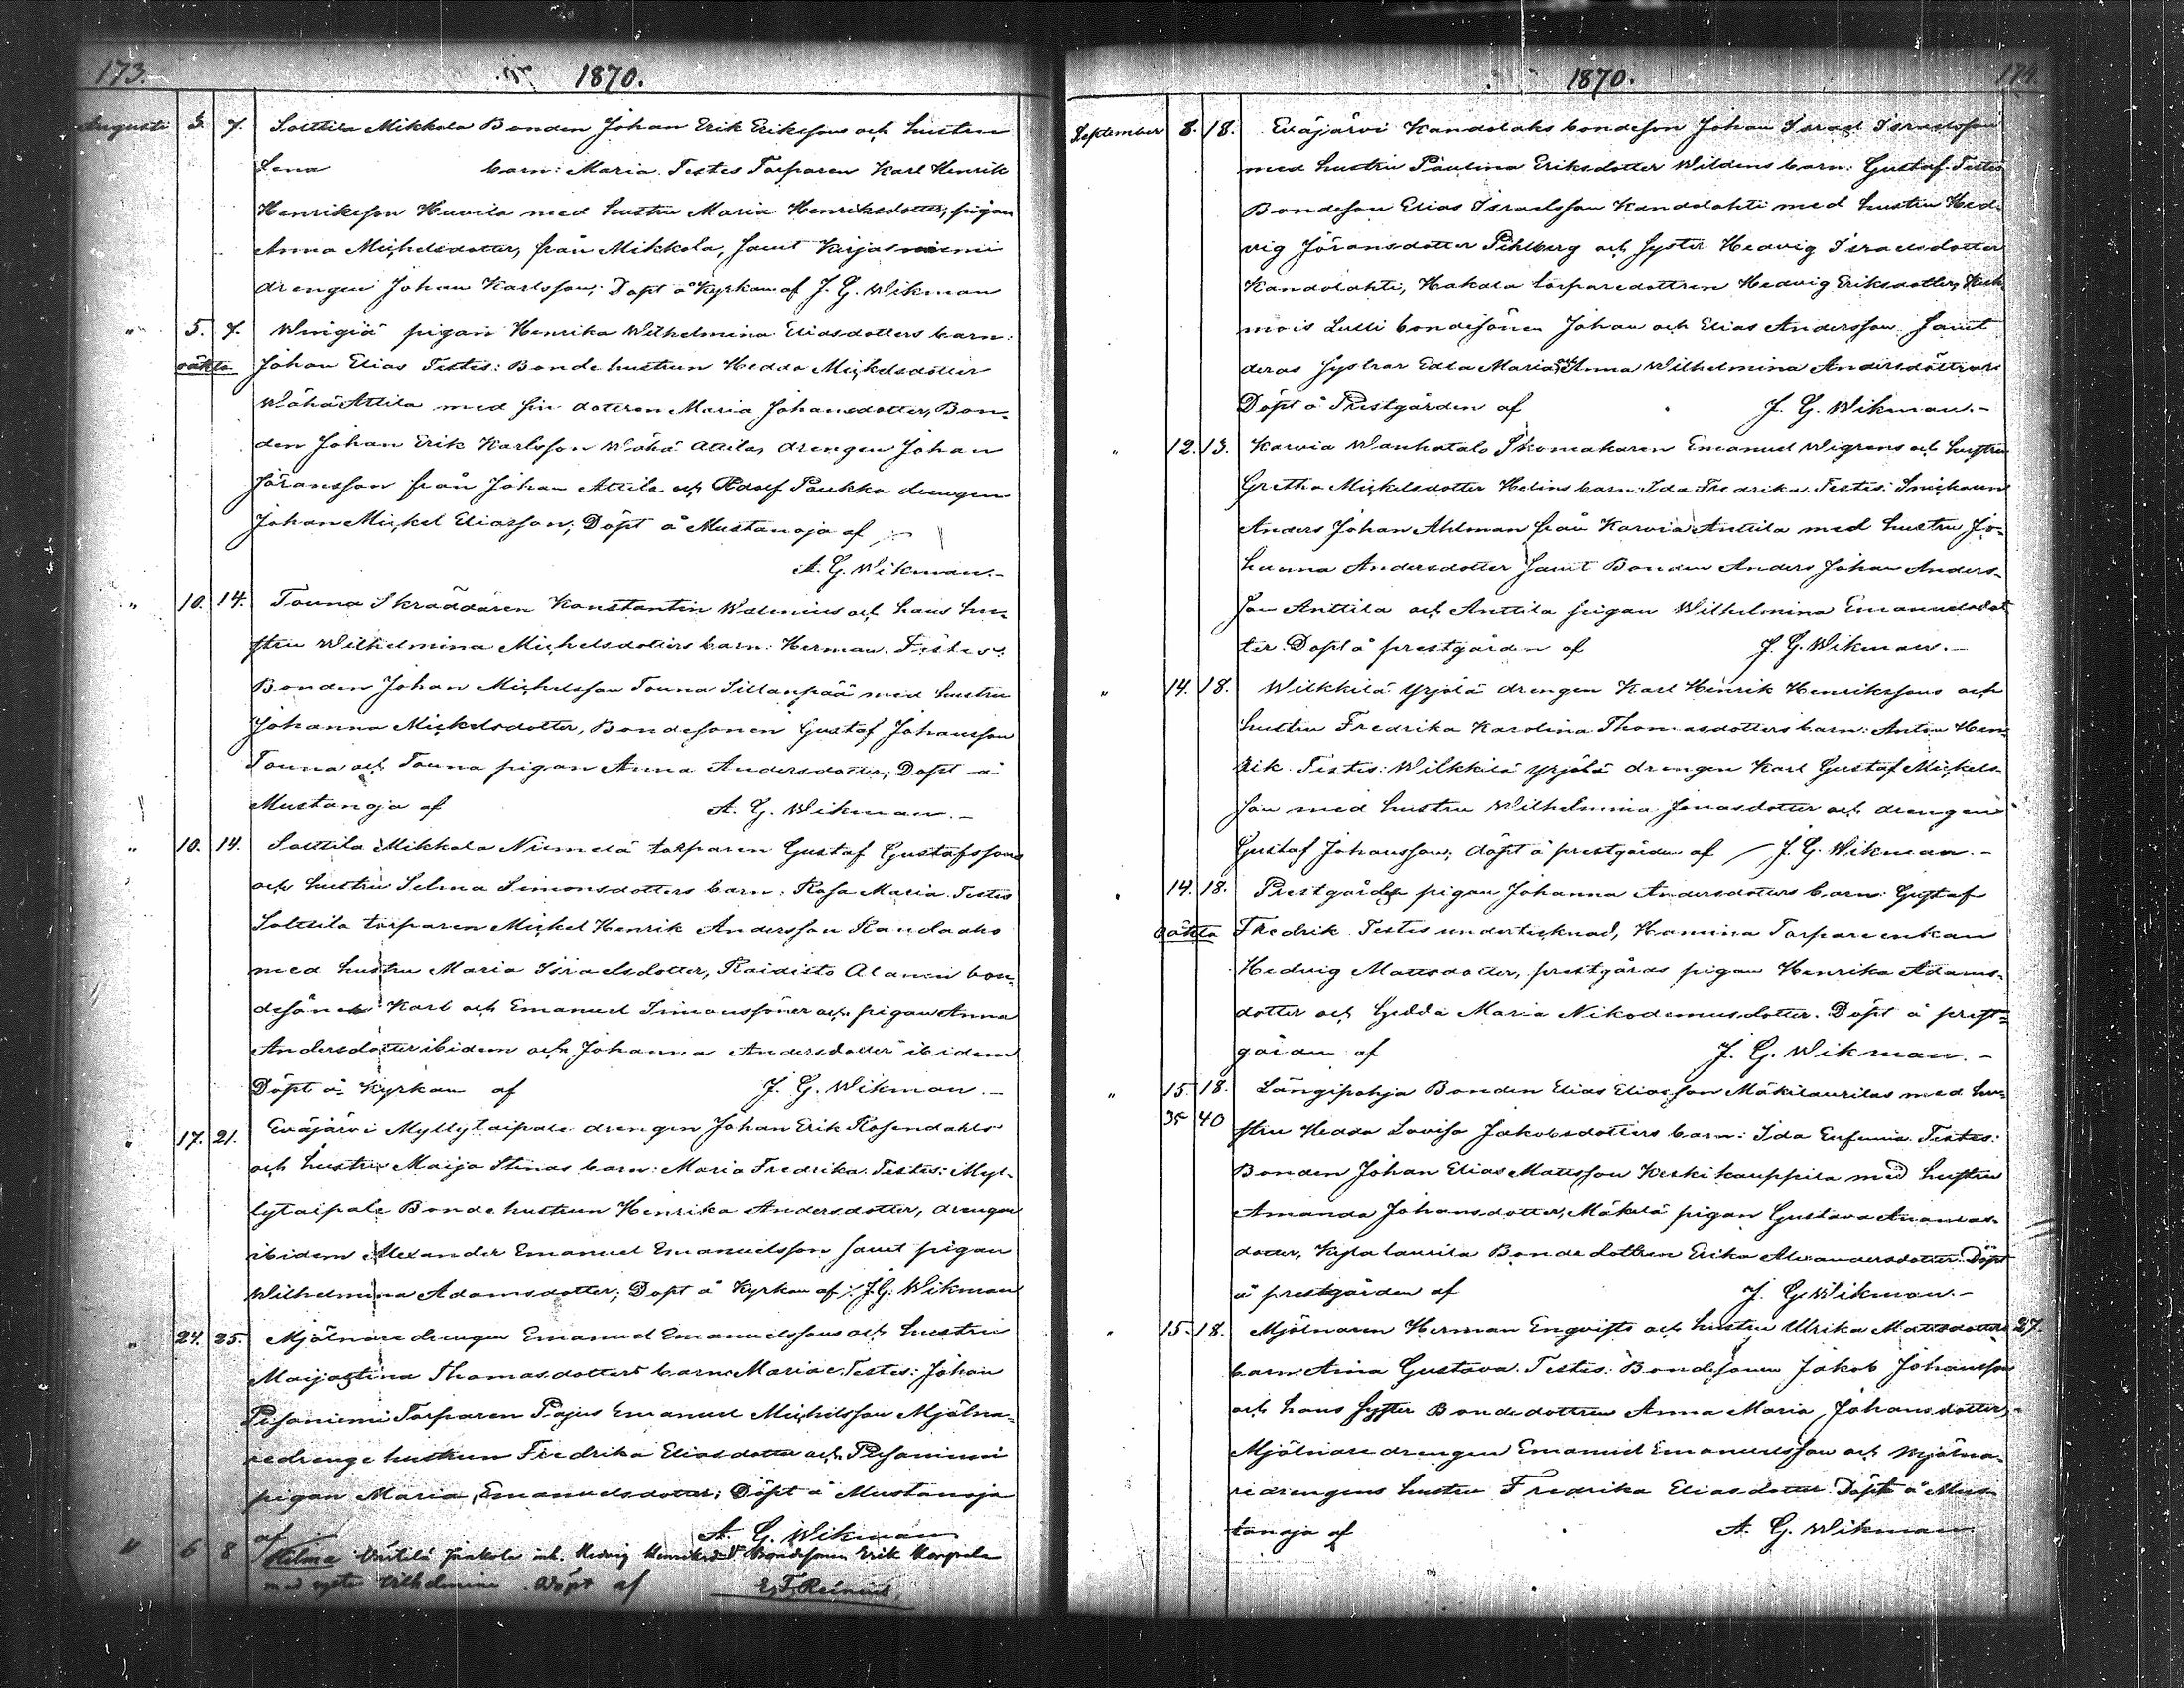 173.
1870.
Augusti 3. 7. Solttila Mikkola Bonden Johan Erik Eriksons och hustru
Lena barn: Maria. Testes Torparen Karl Henrik
Henrikson Huvila med hustru Maria Henriksdotter, pigan
Anna Michelsdotter, från Mikkola, samt Kirjasniemi
drengen Johan Karlsson; Döpt å Kyrkan af J. G. Wikman
" 5. 7. Wingiä pigan Henrika Wilhelmina Eliasdotters barn:
oäkta Johan Elias Testes: Bondehustrun Hedda Mickelsdotter
WähäAttila med sin dottren Maria Johansdotter, Bon-
den Johan Erik Karlsson Wähä Attila, drengen Johan
Jöransson från Johan Attila och Adolf Paukka drengen
Johan Mickel Eliasson; Döpt å Mustanoja af
A. G. Wikman.-
" 10. 14. Touna Skräddaren Konstantin Walenius och hans hu-
stru Wilhelmina Michelsdotters barn: Herman. Testes:
Bonden Johan Michelsson Touna Sillanpää med hustru
Johanna Mickelsdotter, Bondesonen Gustaf Johansson
Touna och Touna pigan Anna Andersdotter; Döpt å
Mustanoja af A. G. Wikman.-
" 10. 14. Solttila Mikkola Niemelä torparen Gustaf Gustafssons
och hustru Selma Simonsdotters barn: Rosa Maria. Testes
Solttila torparen Mickel Henrik Andersson Raudaaho
med hustru Maria Israelsdotter, Raidisto Alanen bon-
desöner Karl och Emanuel Simonssöner och pigan Anna
Andersdotter ibidem och Johanna Andersdotter ibidem
Döpt å Kyrkan af J. G. Wikman.-
" 17. 21. Eväjärvi Myllytaipale drengen Johan Erik Rosendahls
och hustru Maija Stinas barn: Maria Fredrika. Testes: Myl-
lytaipale Bondehustrun Henrika Andersdotter, drengen
ibidem Alexander Emanuel Emanuelsson samt pigan
Wilhelmina Adamsdotter; Döpt å Kyrkan af J. G. Wikman
" 24. 25. Mjölnaredrengen Emanuel Emanuelssons och hustru
Maijastina Thomasdotters barn: Maria. Testes: Johan
Pisoniemi Torparen Pajus Emanuel Michelsson Mjölna-
redrenge hustrun Fredrika Eliasdotter och Pisoniemi
pigan Maria Emanuelsdotter; Döpt å Mustanoja
af A. G. Wikman
" 6 8 Hilma Jaakola inh. Hedvig Henriksd. Bondesonen Erik
med syster Vilhelmine. Döpt af E. F. Reinius.
1870.
174.
September 8. 18. Eväjärvi Kandolaks bondeson Johan Israel Israelsson
med hustru Paulina Eriksdotter Wildens barn: Gustaf. Testes
Bondeson Elias Israelsson Kandolahti med hustru Hed-
vig Jöransdotter Pihlberg och syster Hedvig Israelsdotter
Kandolahti, Hakala torparedottren Hedvig Eriksdotter, Kuh-
mois Lulli bondesönen Johan och Elias Andersson samt
deras systrar Edla Maria & Anna Wilhelmina Andersdöttrar
Döpt å Prestgården af J. G. Wikman.-
" 12. 13. Karvia Wanhatalo Skomakaren Emanuel Wigrens och hustru
Gretha Mickelsdotter Helins barn: Ida Fredrika. Testes:
Anders Johan Ahlman från Karvia Anttila med hustru Jo-
hanna Andersdotter samt Bonden Anders Johan Anders-
son Anttila och Anttila pigan Wilhelmina Emanuelsdot-
ter. Döpt å prestgården af J. G. Wikman.-
" 14. 18. Wilkkilä Yrjölä drengen Karl Henrik Henrikssons och
hustru Fredrika Karolina Thomasdotters barn: Anton Hen-
rik. Testes: Wilkkilä Yrjölä drengen Karl Gustaf Mickels-
son med hustru Wilhelmina Jonasdotter och drengen
Gustaf Johansson; döpt å prestgården af J. G. Wikman.-
" 14. 18. Prestgårds pigan Johanna Andersdotters barn: Gustaf
oäkta Fredrik. Testes undertecknad, Hamina Torpareenkan
Hedvig Mattsdotter, prestgårds pigan Henrika Adams-
dotter och Hedda Maria Nikodemusdotter. Döpt å prest-
gården af J. G. Wikman.-
" 15. 18. Längipohja Bonden Elias Eliasson Mäkilaurilas med hu-
35 40 stru Hedda Lovisa Jakobsdotters barn: Ida Eufemia. Testes:
Bonden Johan Elias Mattsson Keskikauppila med hustru
Amanda Johansdotter, Mäkelä pigan Gustava Amandas-
dotter, Kylalaurila Bondedottren Erika Alexandersdotter. Döpt
å prestgården af J. G. Wikman.-
" 15. 18. Mjölnaren Herman Engvists och hustru Ulrika Mattsdotters 27.
barn: Aina Gustava. Testes: Bondesonen Jakob Johansson
och hans syster Bondedottren Anna Maria Johansdotter,
Mjölnare drengen Emanuel Emanuelsson och Mjölna-
redrengens hustru Fredrika Eliasdotter. Döpt å Mus-
tanoja af A. G. Wikman